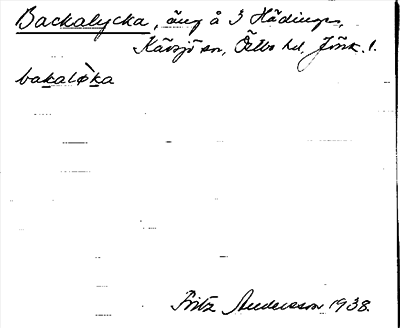 Backalycka, äng å 3 Hädinge,
Kävsjö sn, Östbo hd, Jönk. l.
bakalø̀ka
Fritz Andersson 1938.